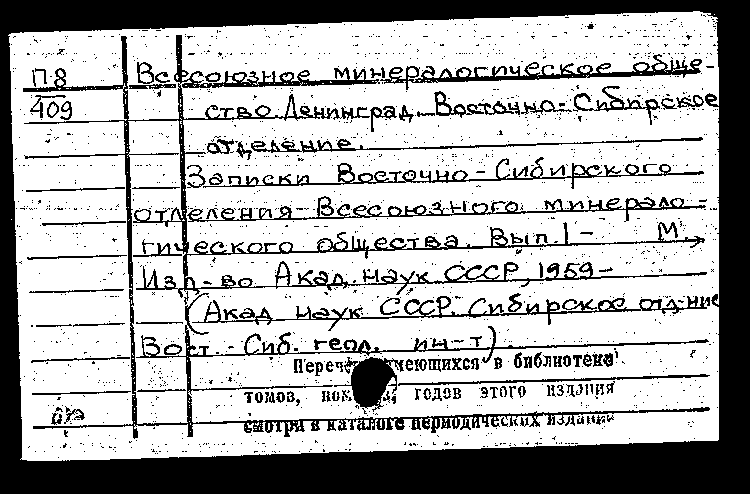 П8 Всесоюзное минералогическое обще-
409 ство. Ленинград. Восточно-Сибирское
отделение.
Записки Восточно-Сибирского
отделения Всесоюзного минерало-
гического общества. Вып. 1- М.,
Изд-во Акад. наук СССР, 1959-
(Акад наук СССР. Сибирское отд-ние
Вост.-Сиб. геол. ин-т)
в библиотеке
томов, годов этого издания
смотри в каталоге периодических изданий